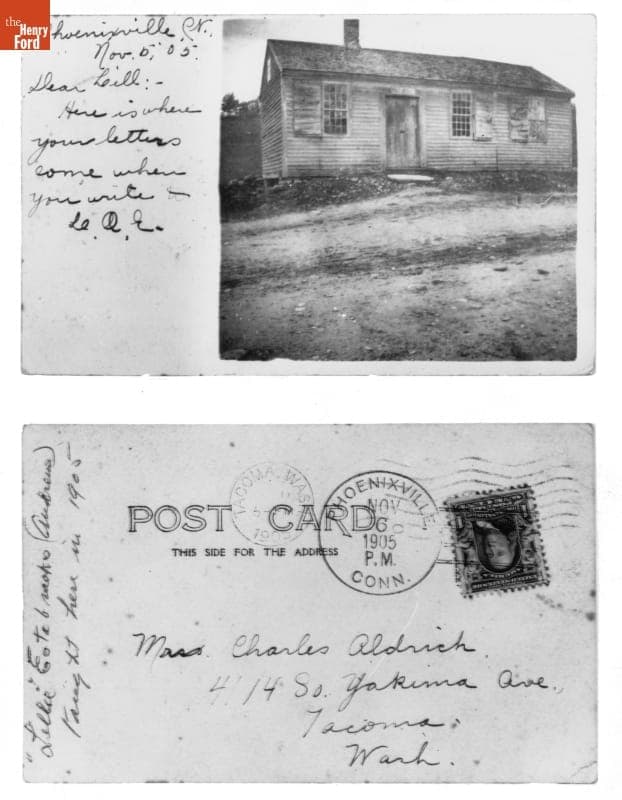 the
Henry
Ford
Phoenixville, Ct.
Nov. 5, '05.
Dear Lill:-
Here is where
your letters
come when
you write -
L. A. E.
POST CARD
THIS SIDE FOR THE ADDRESS
TACOMA, WASH
1905
PHOENIXVILLE,
NOV
6
1905
P.M.
CONN.
Mrs. Charles Aldrich.
4114 So. Yakima Ave.,
Tacoma.
Wash.
"Lellie" Estabrooks (Andrews)
Taught here in 1905